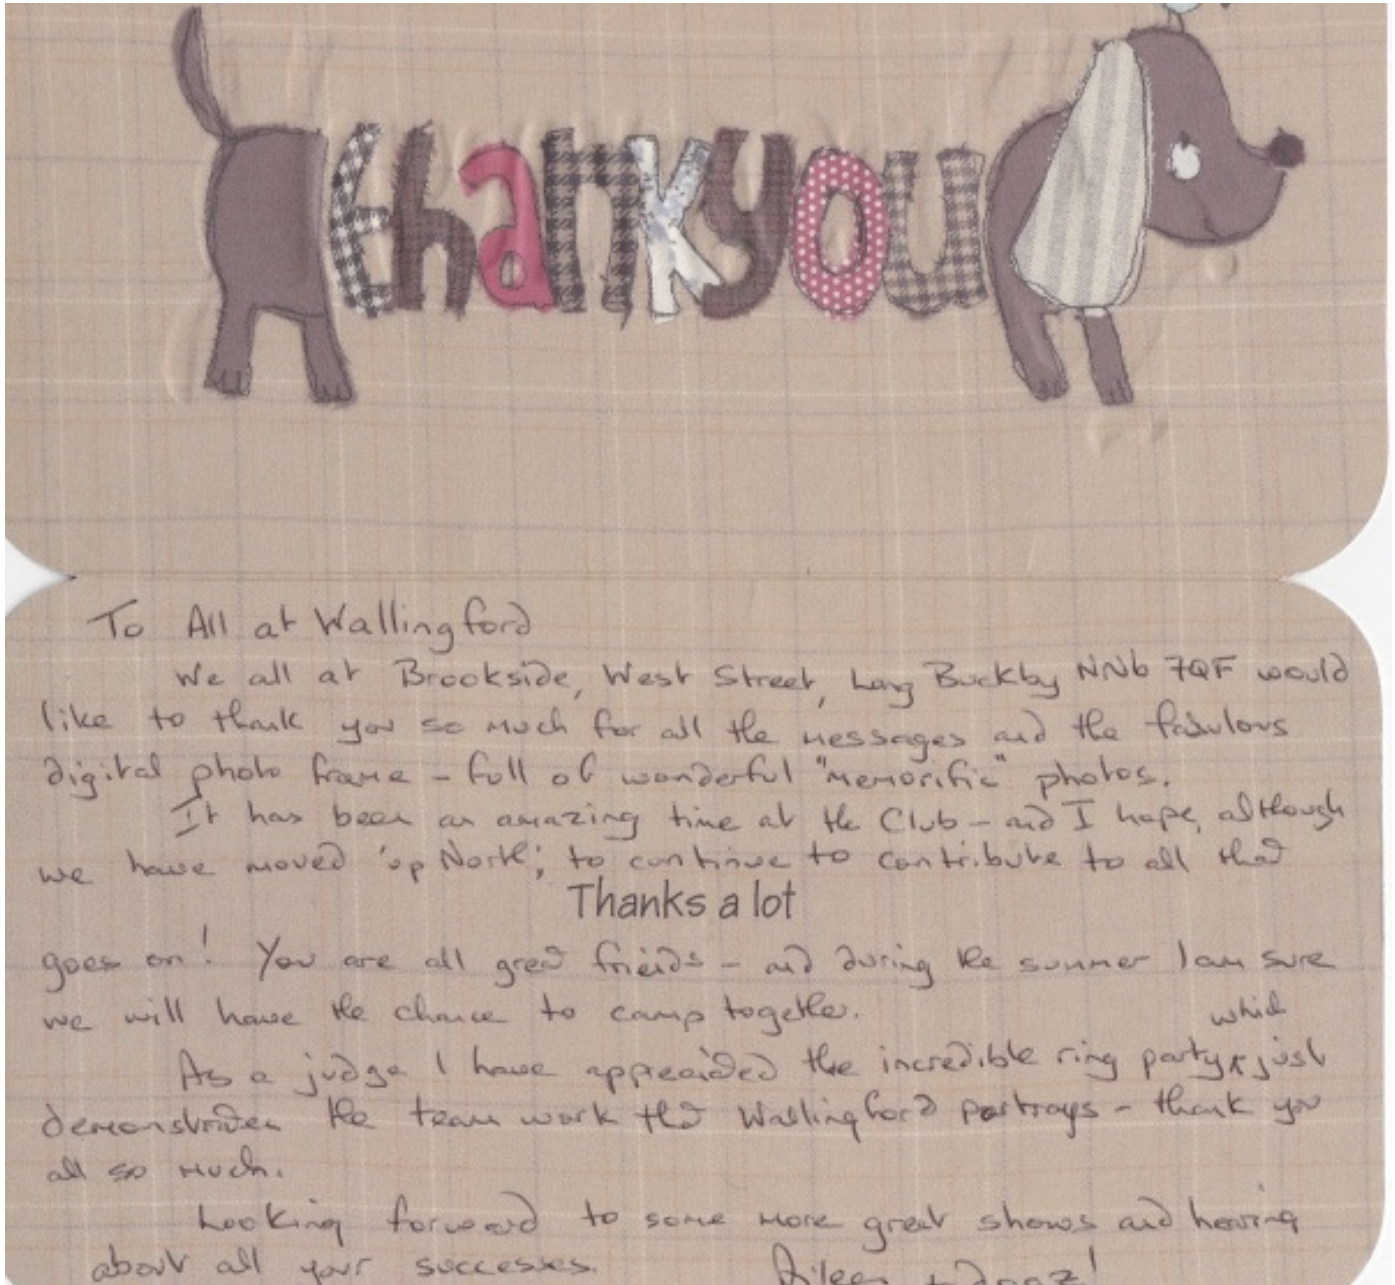 thankyou
To All at Wallingford
We all at Brookside, West Street, Long Buckby NN6 7QF would
like to thank you so much for all the messages and the fabulous
digital photo frame - full of wonderful "memorific" photos.
It has been an amazing time at the Club - and I hope, although
we have moved 'up North', to continue to contribute to all that
Thanks a lot
goes on! You are all great friends - and during the summer I am sure
we will have the chance to camp together.
As a judge I have appreciated the incredible ring party which just
demonstrates the team work that Wallingford portrays - thank you
all so much.
Looking forward to some more great shows and hearing
about all your successes. Aileen